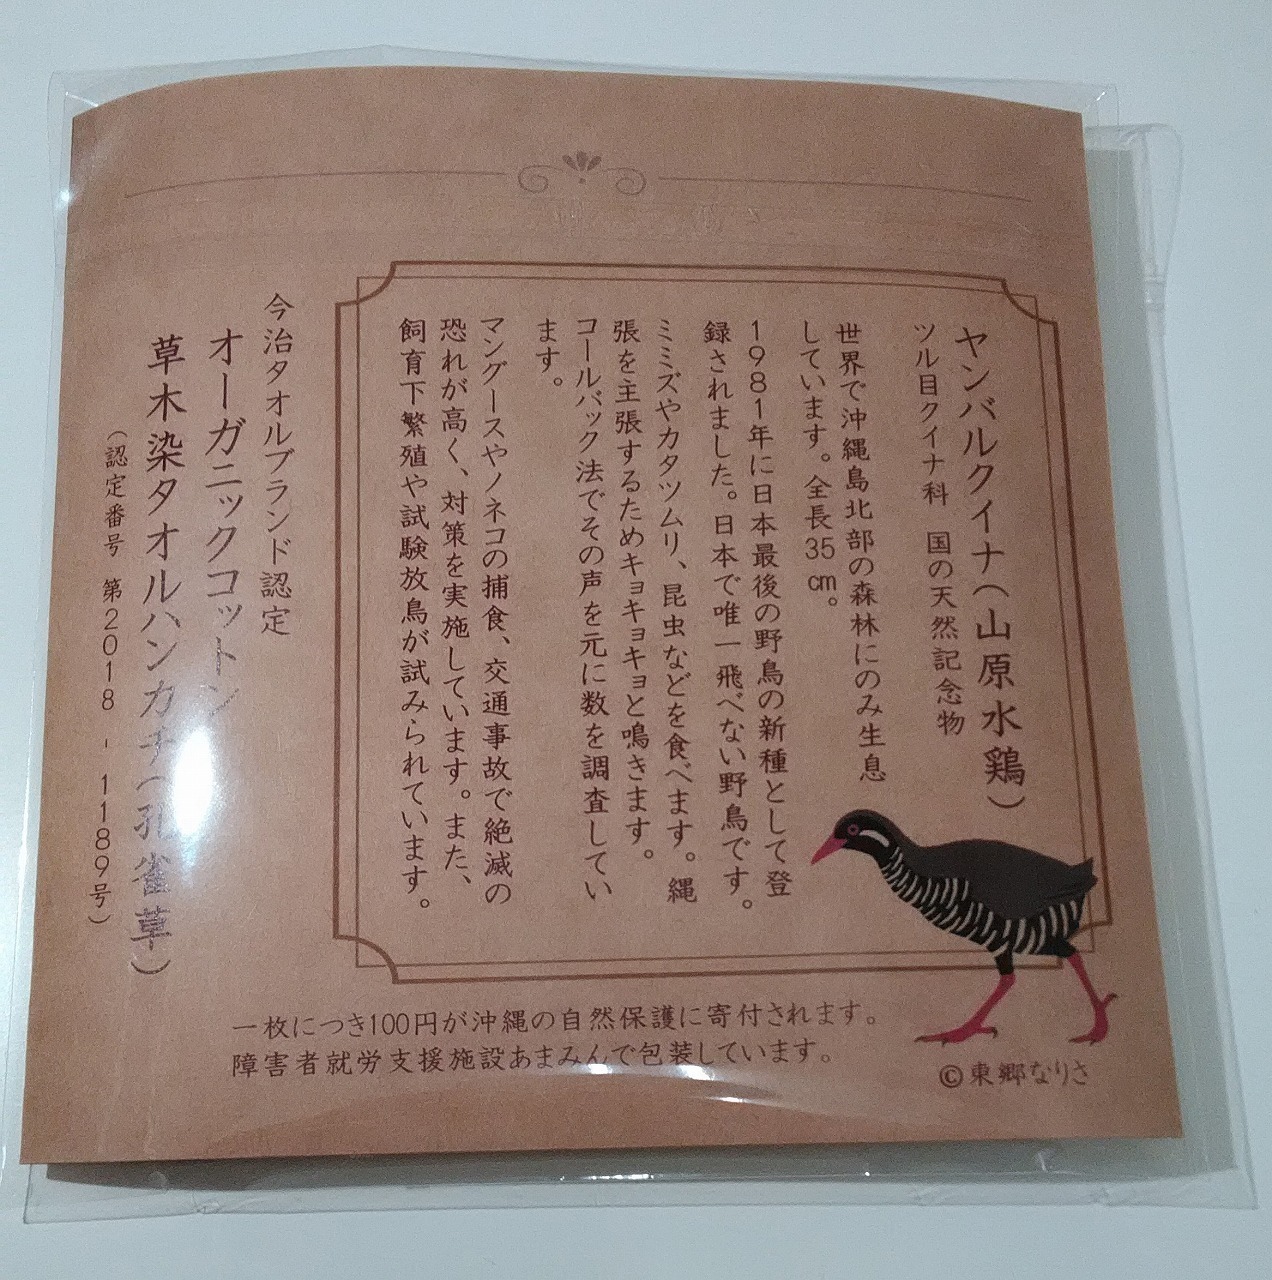 ヤンバルクイナ(山原水鶏)
ツル目クイナ科 国の天然記念物
世界で沖縄島北部の森林にのみ生息
しています。全長35㎝。
1981年に日本最後の野鳥の新種として登
録されました。日本で唯一飛べない野鳥です。
ミミズやカタツムリ、昆虫などを食べます。縄
張を主張するためキョキョキョと鳴きます。
コールバック法でその声を元に数を調査してい
ます。
マングースやノネコの捕食、交通事故で絶滅の
恐れが高く、対策を実施しています。また、
飼育下繁殖や試験放鳥が試みられています。
今治タオルブランド認定
オーガニックコットン
草木染タオルハンカチ(孔雀草)
(認定番号 第2018-1189号)
一枚につき100円が沖縄の自然保護に寄付されます。
障害者就労支援施設あまみんで包装しています。
©東郷なりさ